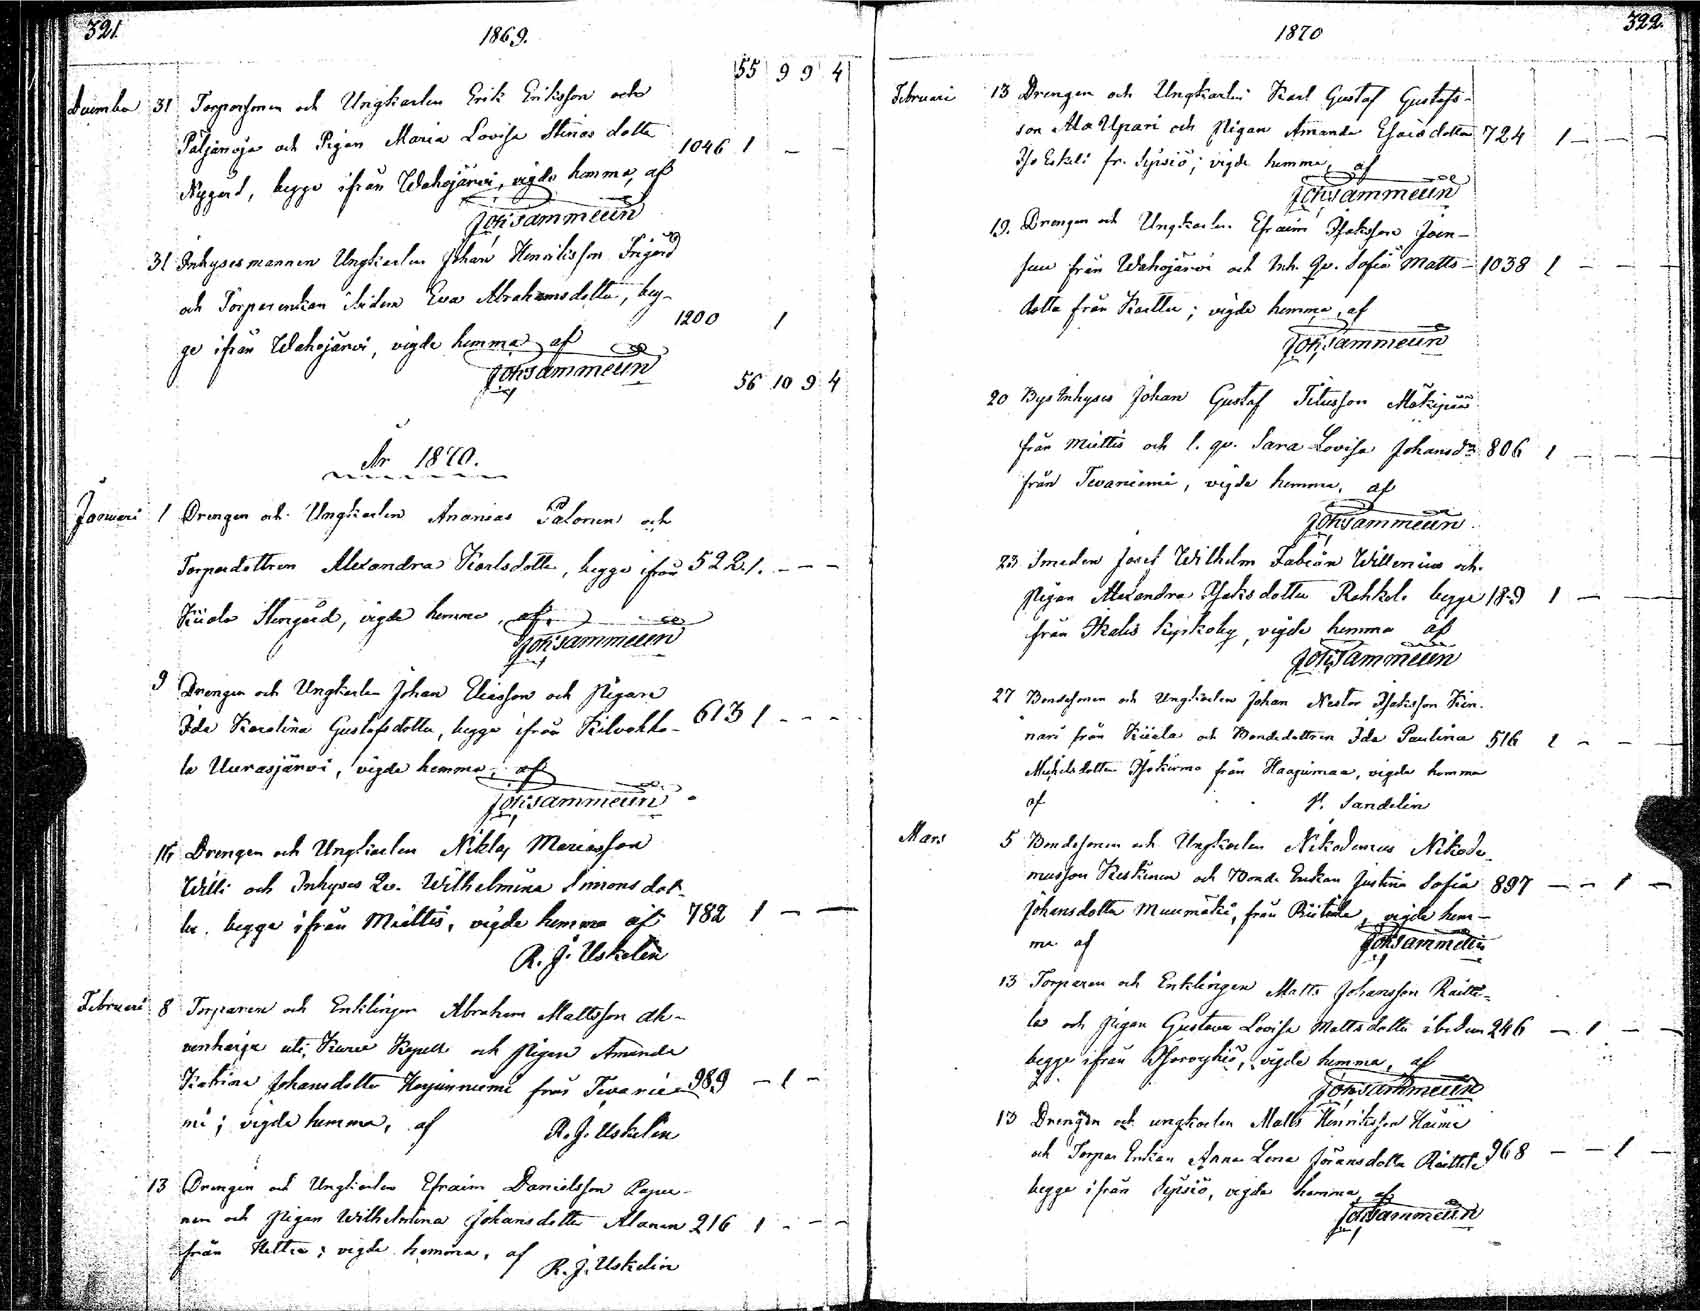 321.
1869.
55 9 9 4
31 Torparsonen och Ungkarlen Erik Eriksson
och Pigan Maria Lovisa dotter 1046 1 – –
Nygård, begge ifrån Wahojärwi, vigde hemma, af
Joh. Sammelin
31 Inhysesmannen Ungkarlen Johan Henriksson
och Torparenkan ibidem Eva Abrahamsdotter, beg-
1200 1
ge ifrån Wahojärwi, vigde hemma af
Joh. Sammelin
56 10 9 4
År 1870.
Januari 1 Drengen och Ungkarlen Ananias Palonen och
Torpardottren Alexandra Karlsdotter, begge ifrån 522. 1. – – –
vigde hemma, af
Joh. Sammelin
9 Drengen och Ungkarlen Johan Eliasson och Pigan
Ida Karolina Gustafsdotter, begge ifrån Kilvakka- 613 1 – – –
la Uurasjärvi, vigde hemma, af
Joh. Sammelin
16 Drengen och Ungkarlen Niklas Mariasson
Willi och Inhyses Qv. Wilhelmina Simonsdot-
ter, begge ifrån Miettis, vigde hemma af 782 1 – –
R. J. Uskelin
Februari 8 Torparen och Enklingen Abraham Mattsson Ah-
uti Kapell och Pigan Amanda
Johansdotter från Tevanie- 989 – 1 –
mi; vigde hemma, af
R. J. Uskelin
13 Drengen och Ungkarlen Efraim Danielsson
nen och Pigan Wilhelmina Johansdotter Alanen 216 1 – – –
från vigde hemma, af
R. J. Uskelin
322.
1870
Februari 13 Drengen och Ungkarlen Karl Gustaf Gustafs-
son Ala Upari och Pigan Amanda Esaisdotter 724 1 – – –
fr. Sipsiö; vigde hemma, af
Joh. Sammelin
19. Drengen och Ungkarlen Efraim Isaksson Joen-
suu från Wahojärvi och Inh. Qv. Sofia Matts- 1038 1 – – –
dotter från vigde hemma, af
Joh. Sammelin
20 Bys Inhyses Johan Gustaf Titusson Mäkipää
från Miettis och l. qv. Sara Lovisa Johansdr 806 1 – – –
från Tevaniemi, vigde hemma, af
Joh. Sammelin
23 Smeden Josef Wilhelm Fabian Willenius och
Pigan Alexandra Isaksdotter begge 189 1 – – –
från Ikalis Kyrkoby, vigde hemma af
Joh. Sammelin
27 Bondesonen och Ungkarlen Johan Nestor Isaksson Kin-
nari från Kiiala och Bondedottren Ida Paulina 516 1 – – –
Mickelsdotter från Haapimaa, vigde hemma
af
Sandelin
Mars 5 Bondesonen och Ungkarlen Nikodemus Nikode-
musson Keskinen och Bonde Enkan Justina Sofia 897 – – 1 –
Johansdotter Muumäki, från vigde hem-
ma af
Joh. Sammelin
13 Torparen och Enklingen Matts Johansson Raitti-
la och Pigan Gustava Lovisa Mattsdotter ibidem 246 – 1 – –
begge ifrån vigde hemma, af
Joh. Sammelin
13 Drengen och ungkarlen Matts Henriksson
och Torpar Enkan Anna Lena Göransdotter Raittila 968 – – 1 –
begge ifrån Sipsiö, vigde hemma, af
Joh. Sammelin